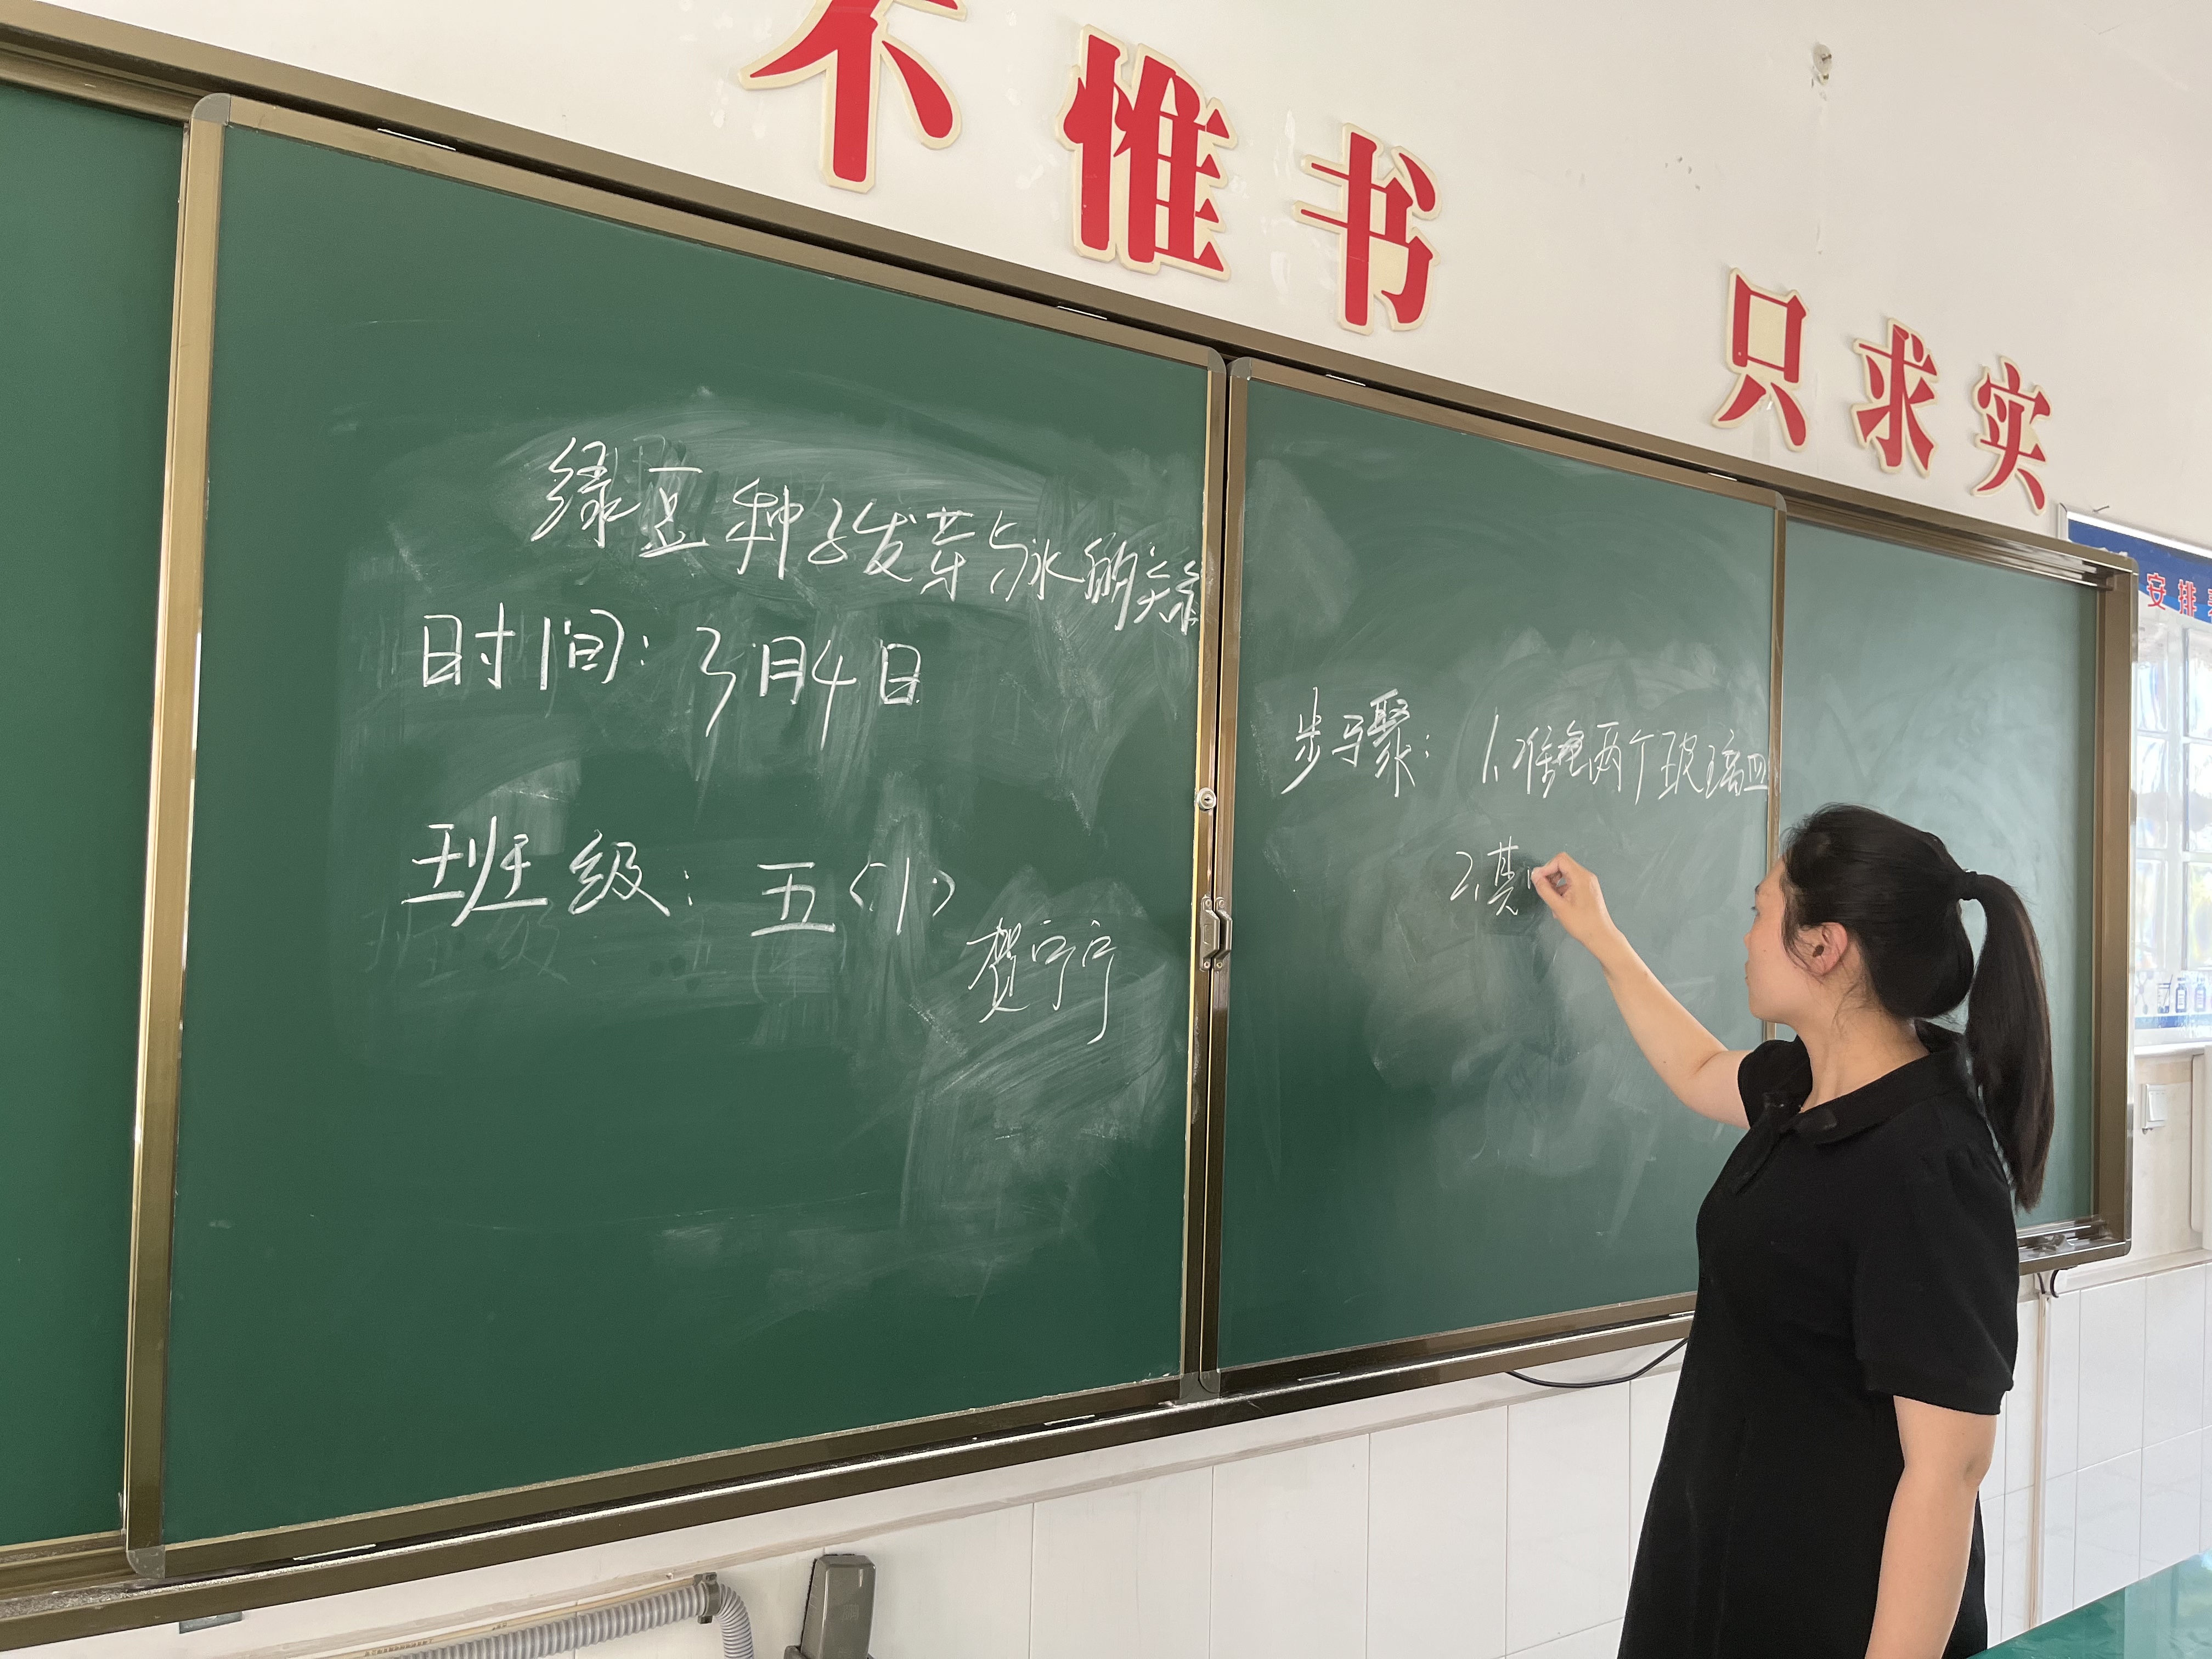 不惟书 只求实
安排
绿豆种子发芽与水的关系
时间：3月4日
班级：五〈1〉
贺宁宁
步骤：1.准备两个玻璃皿
2.其